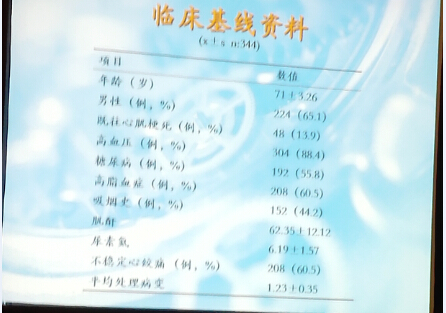 临床基线资料
(x±s n:344)
项目 数值
年龄（岁） 71±3.26
男性（例，%） 224 (65.1)
既往心肌梗死（例，%） 48 (13.9)
高血压（例，%） 304 (88.4)
糖尿病（例，%） 192 (55.8)
高脂血症（例，%） 208 (60.5)
吸烟史（例，%） 152 (44.2)
肌酐 62.35±12.12
尿素氮 6.19±1.57
不稳定心绞痛（例，%） 208 (60.5)
平均处理病变 1.23±0.35